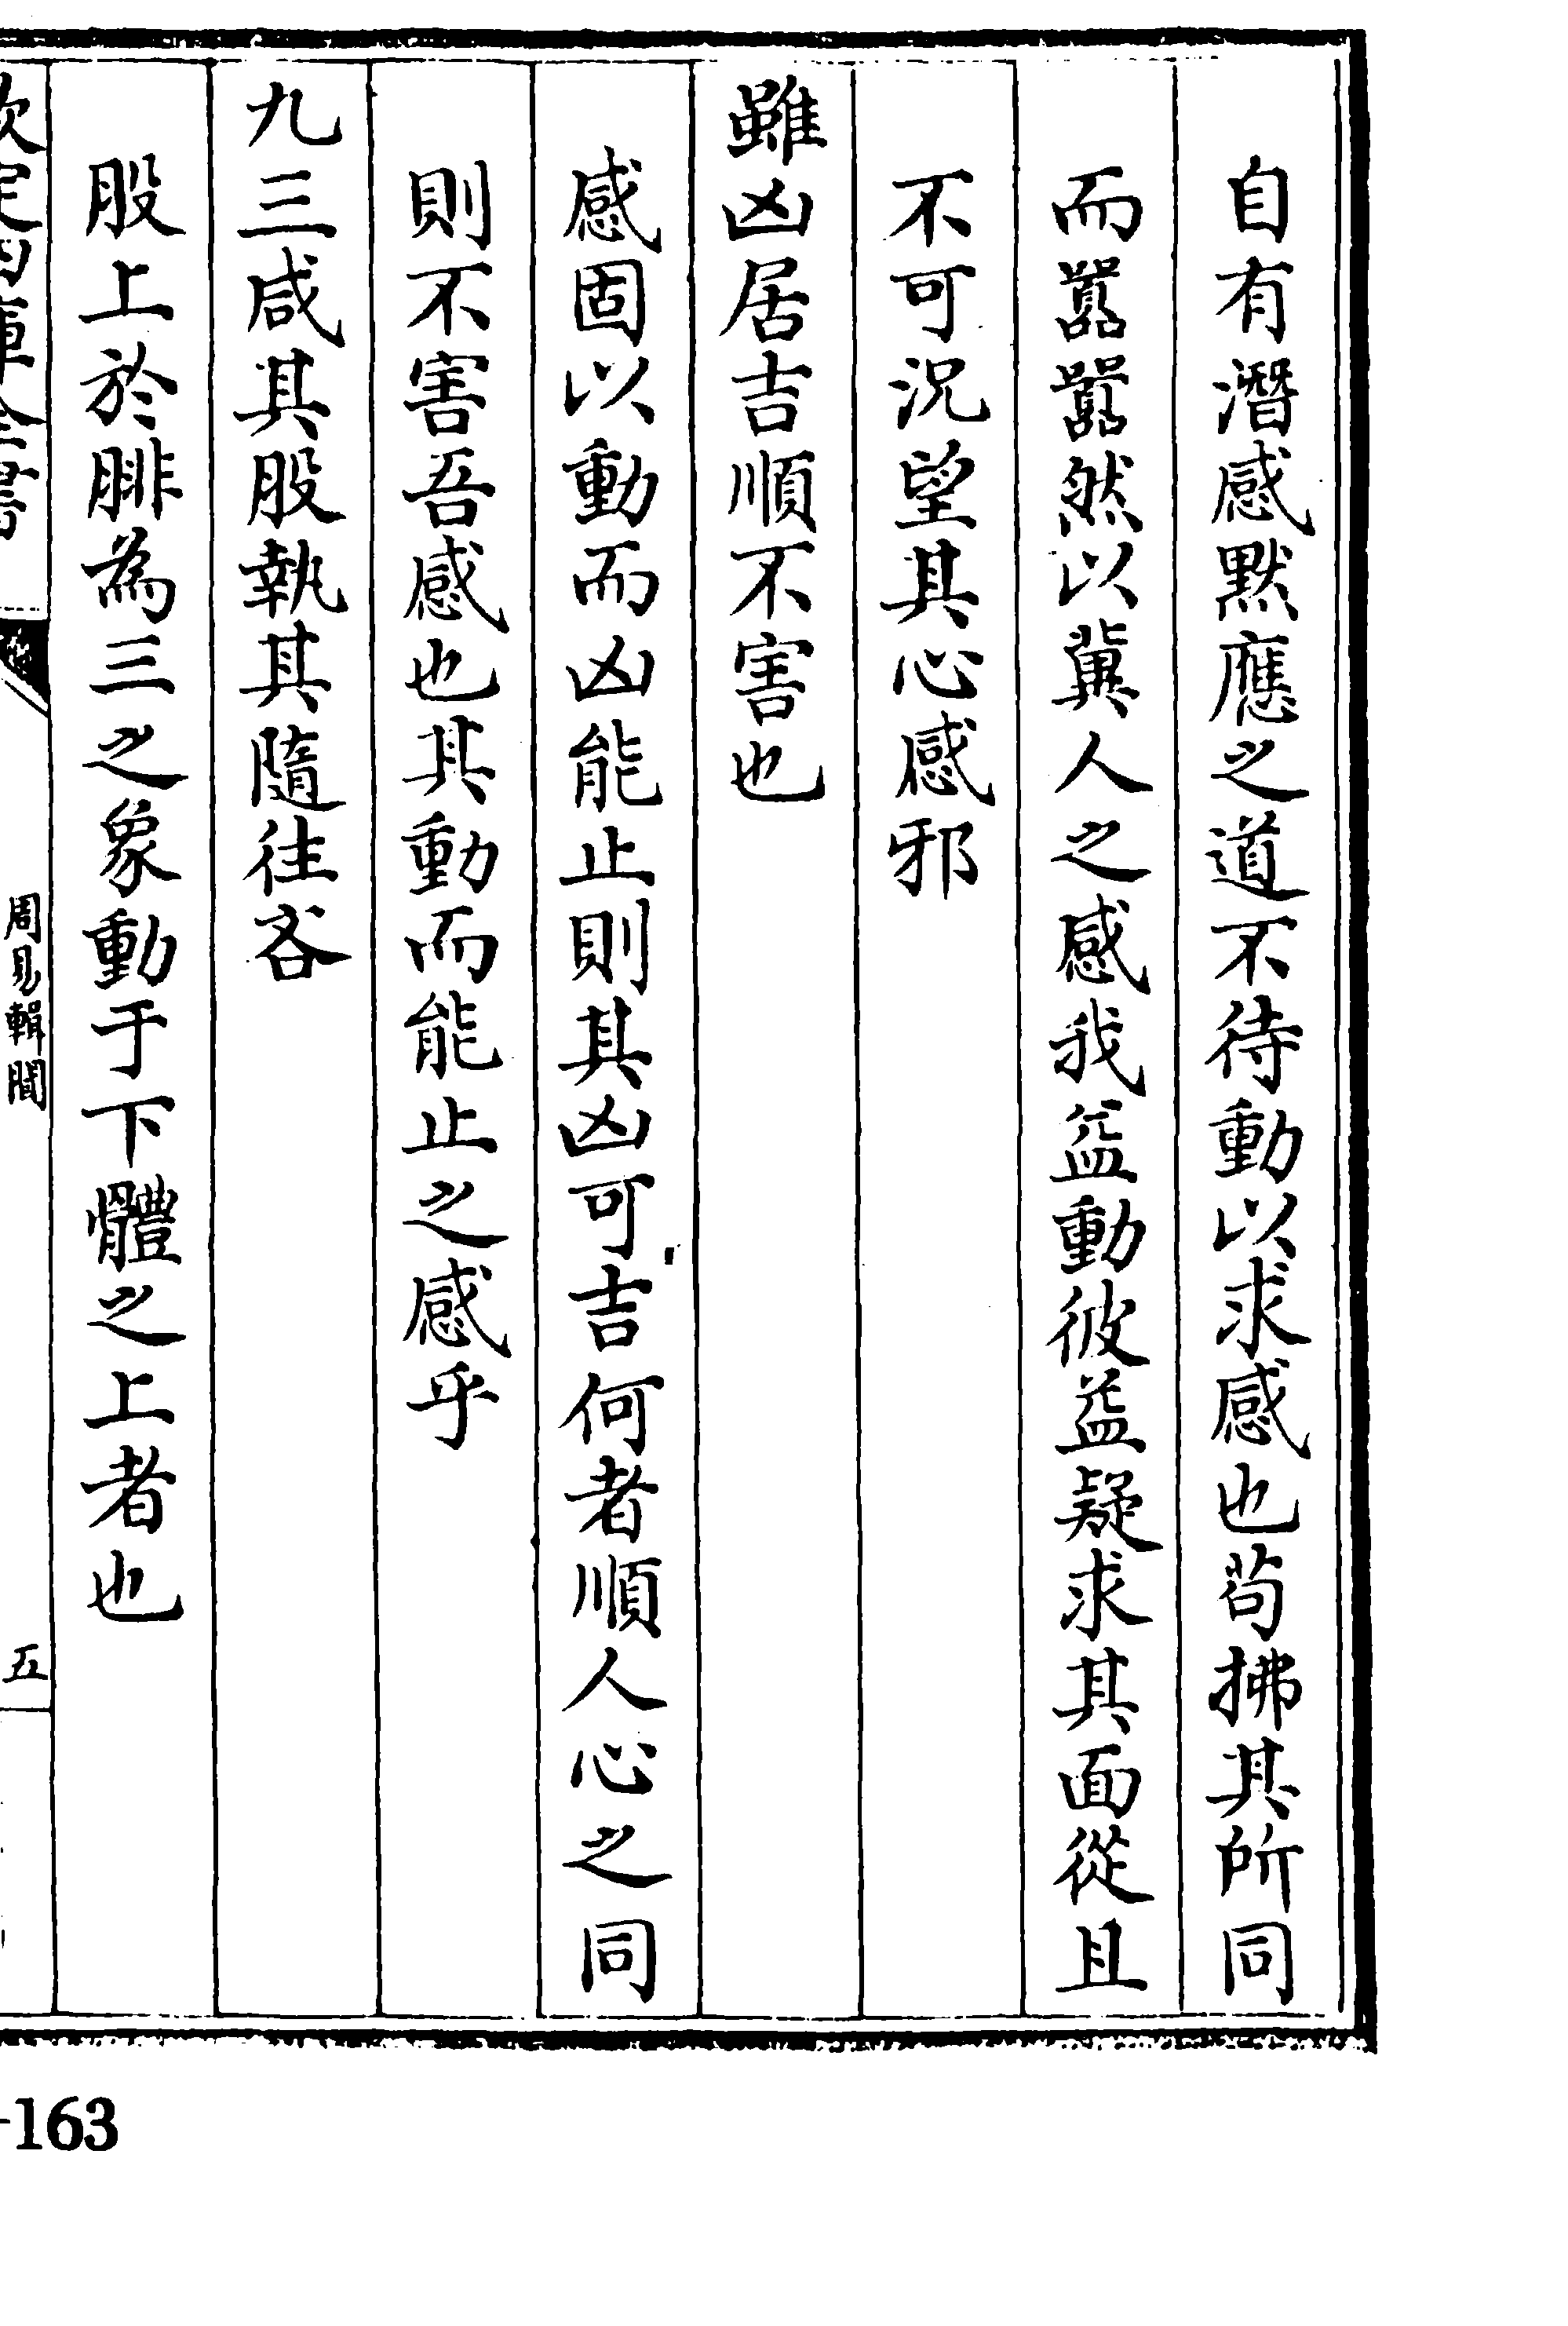 自有潛感黙應之道不待動以求感也茍拂其所同
而囂囂然以冀人之感我益動彼益疑求其面從且
不可況望其心感邪
雖凶居吉順不害也
感固以動而凶能止則其凶可吉何者順人心之同
則不害吾感也其動而能止之感乎
九三咸其股執其隨往吝
股上於腓為三之象動于下體之上者也
欽定四庫全書
周易輯聞
五
-163